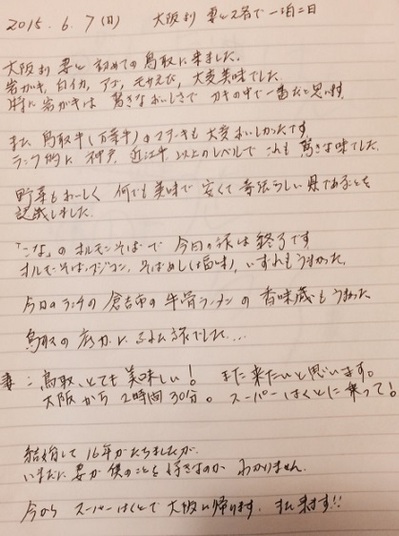 2015.6.7(日) 大阪より 妻と2名で一泊二日
大阪より 妻と 初めての鳥取に来ました。
岩ガキ, 白イカ, アナゴ, モサえび, 大変美味でした。
特に岩ガキは 驚きなおいしさで カキの中で一番だと思います
また 鳥取牛(万葉牛)のステーキも大変おいしかったです
ランク的に 神戸, 近江牛以上のレベルで これも驚きな味でした。
野菜もおいしく 何でも美味で 安くて 素晴らしい県であることを
認識しました。
「こな」のホルモンそばで 今日の旅は終了です
ホルモンそば、そばめし(は旨味), いずれもうまかった。
今日のランチの倉吉市の牛骨ラーメンの 香味徳もうまかった
鳥取の底力に 旅でした...
妻:鳥取、とても美味しい! また来たいと思います。
大阪から 2時間30分。 スーパーはくとに乗って!
結婚して 16年がたちましたが
いまだに妻が僕のことを 好きなのか わかりません。
今から スーパーはくとで大阪に帰ります. また来ます!!